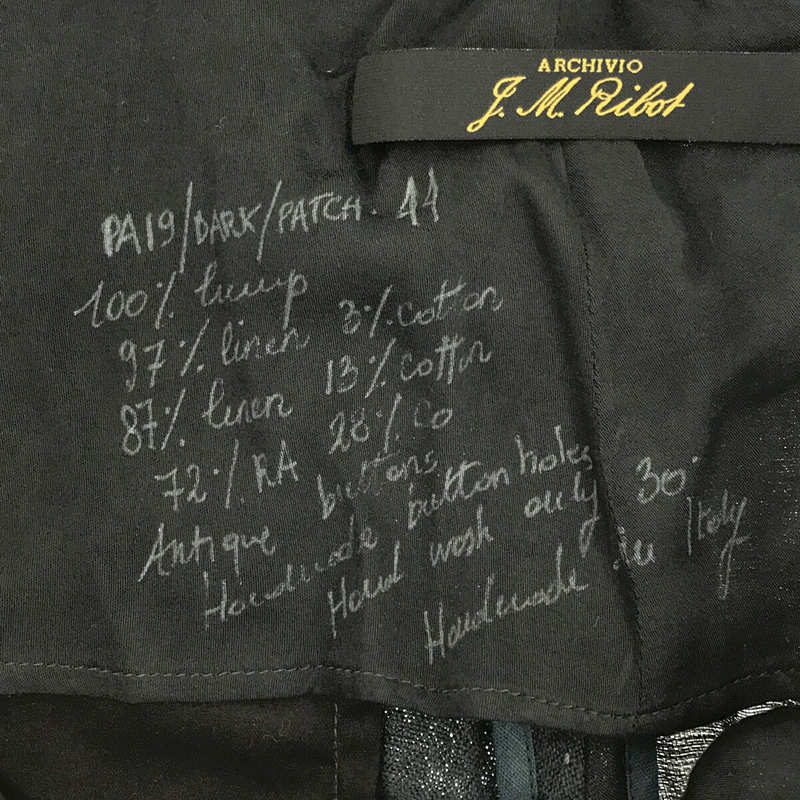 ARCHIVIO
J. M. Ribot
PA19/DARK/PATCH. 44
100% hemp
97% linen 3% cotton
87% linen 13% cotton
72% RA 28% Co
Antique buttons
Handmade button holes
Hand wash only 30°
Handmade in Italy